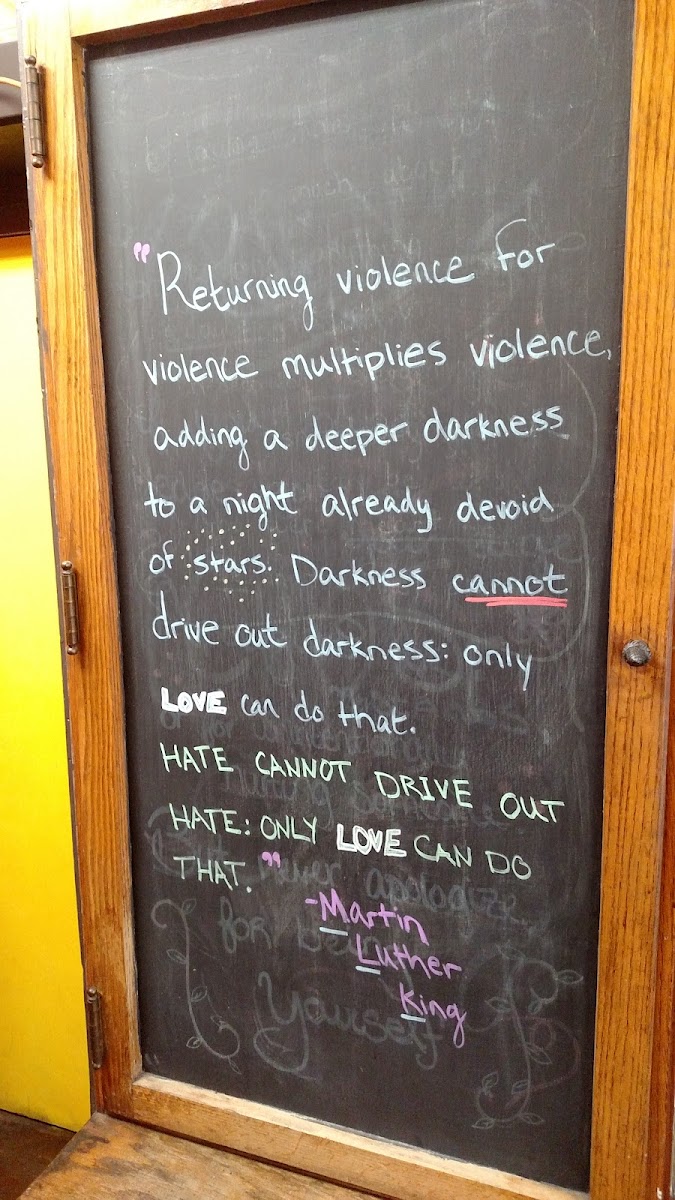 "Returning violence for
violence multiplies violence,
adding a deeper darkness
to a night already devoid
of stars. Darkness cannot
drive out darkness: only
LOVE can do that.
HATE CANNOT DRIVE OUT
HATE: ONLY LOVE CAN DO
THAT."
never apologize
-Martin
for being
Luther
Yourself
King